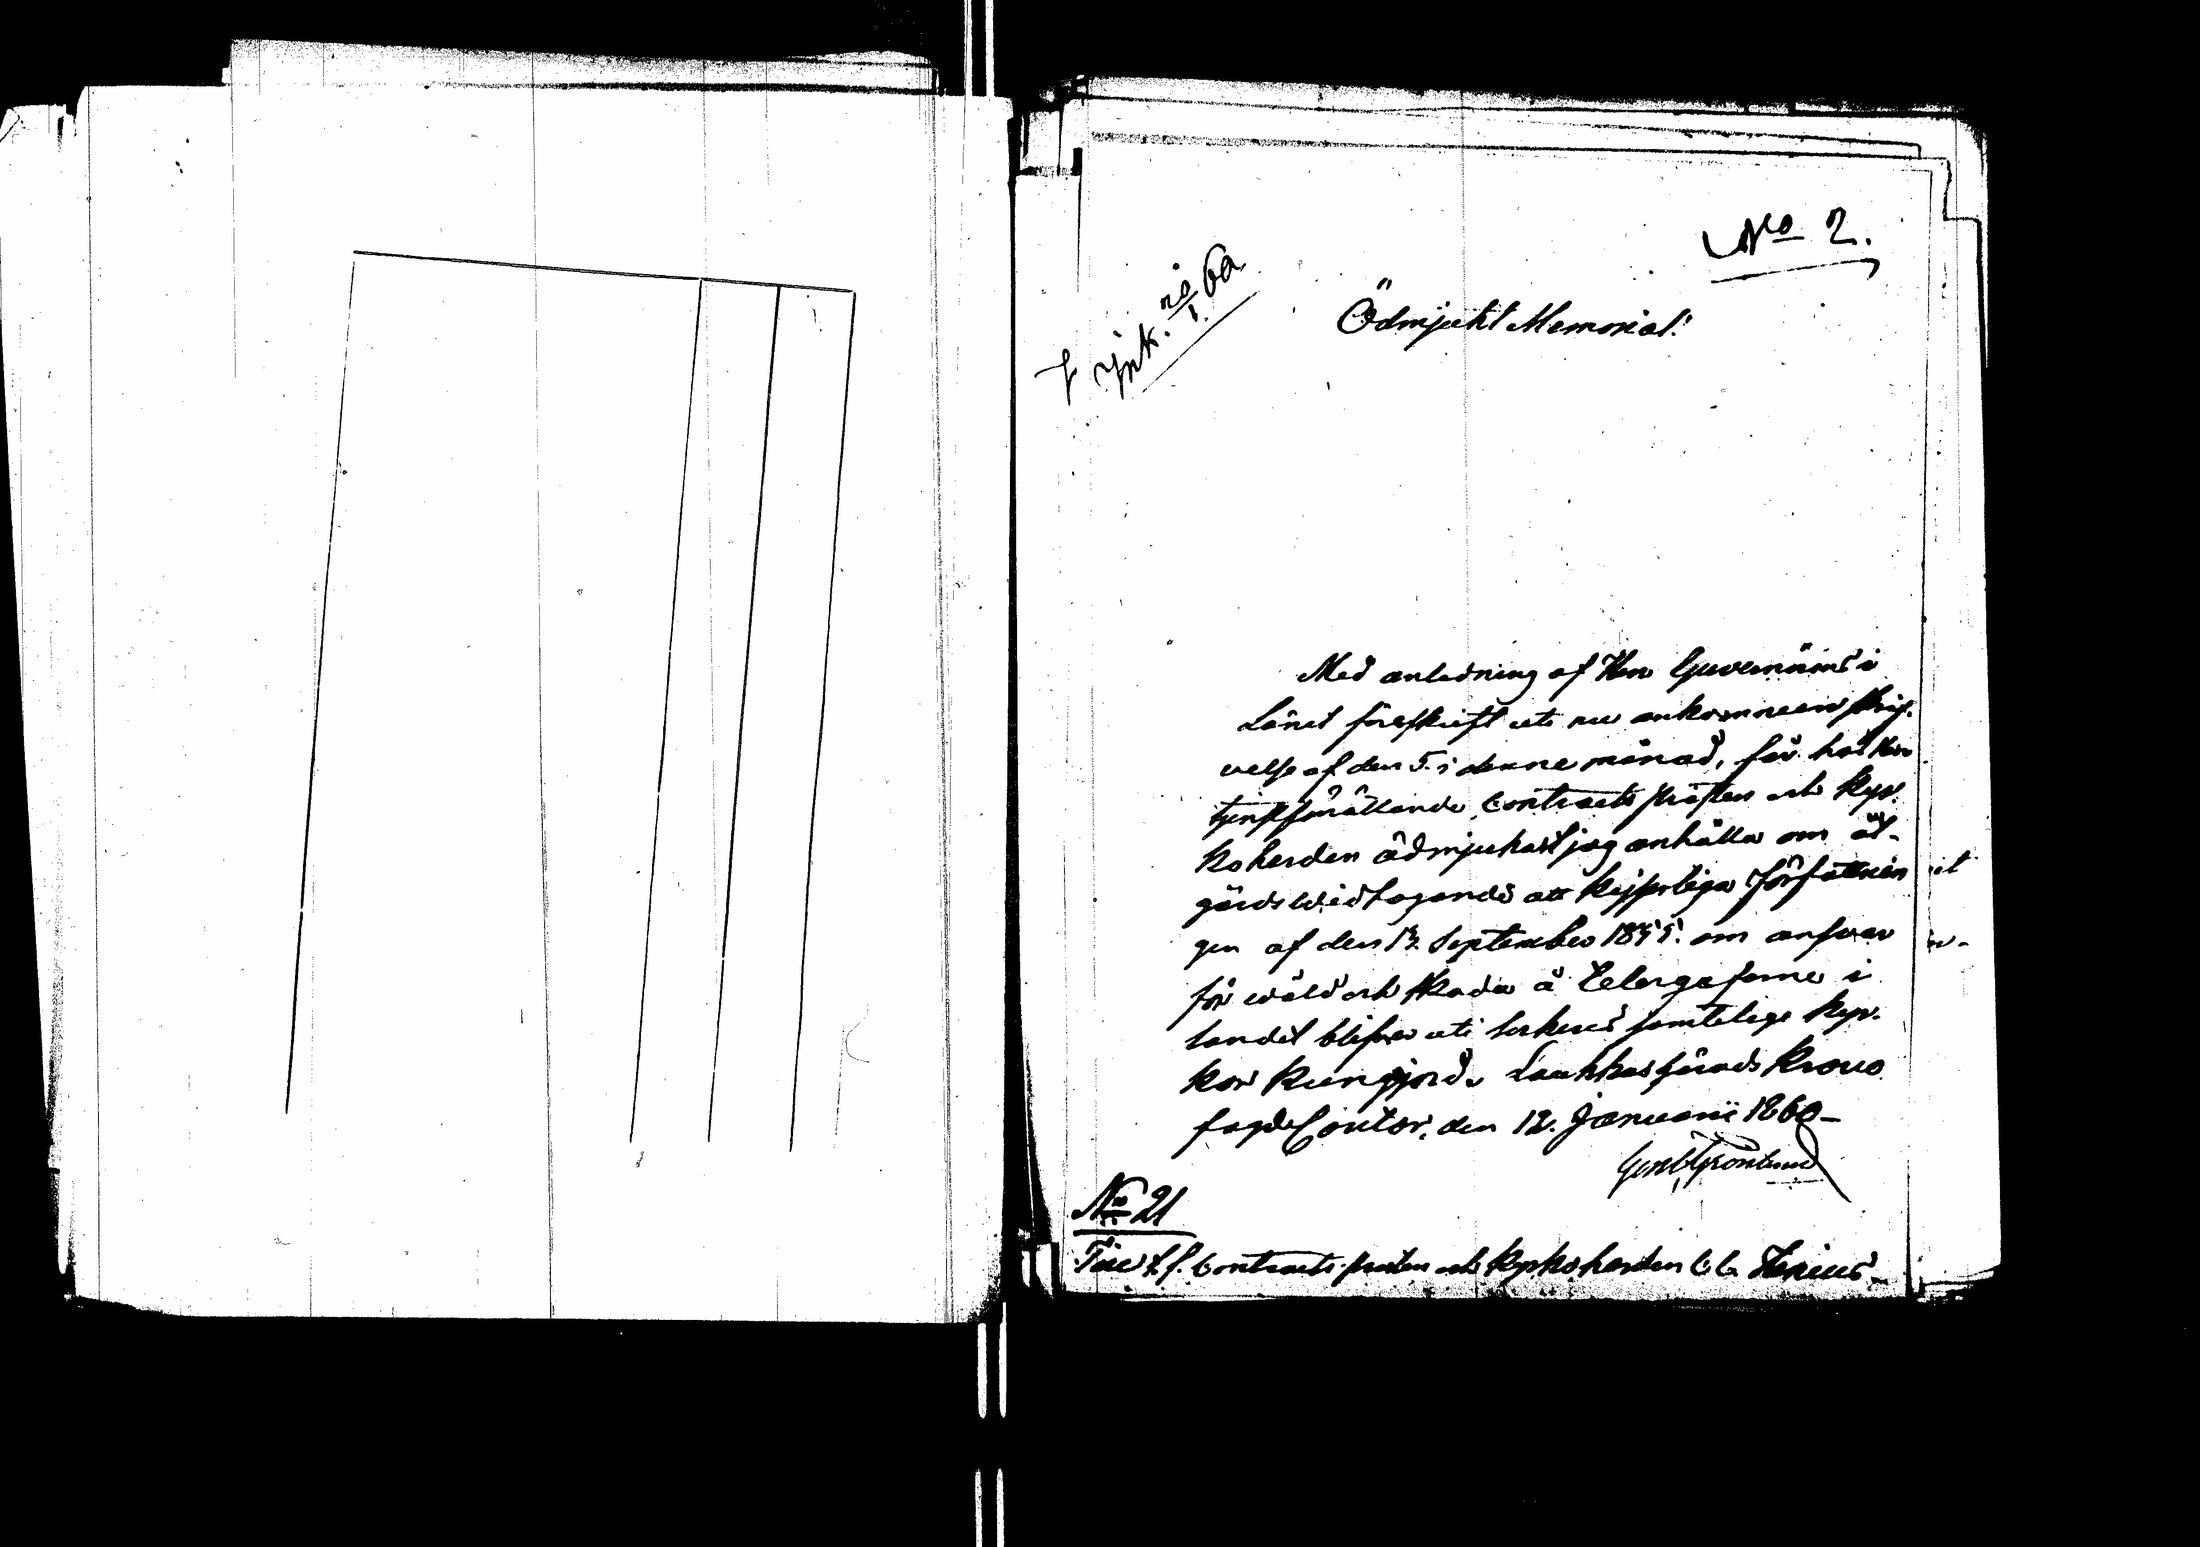 No 2.
Ink. 20/1. 60
Ödmjukt Memorial!
Med anledning af Herr Guvernörns i
Länet föreskrift uti nu ankommen skrif-
velse af den 5. i denne månad, får hos Herr
tjenstförrättande Contracts prosten och Kyr-
koherden ödmjukast jag anhålla om åt-
gärds widtagande att Kejserliga Författnin
gen af den 13. September 1855. om answar
för wåld och skada å Telegraferne i
landet blifwa uti Lockerns samtelige Kyr-
kor kungjord. Laukkas härads Krono
fogde Contor, den 12. Januari 1860 -
Grönlund
No 21
Till t. f. Contracts prosten och Kyrkoherden